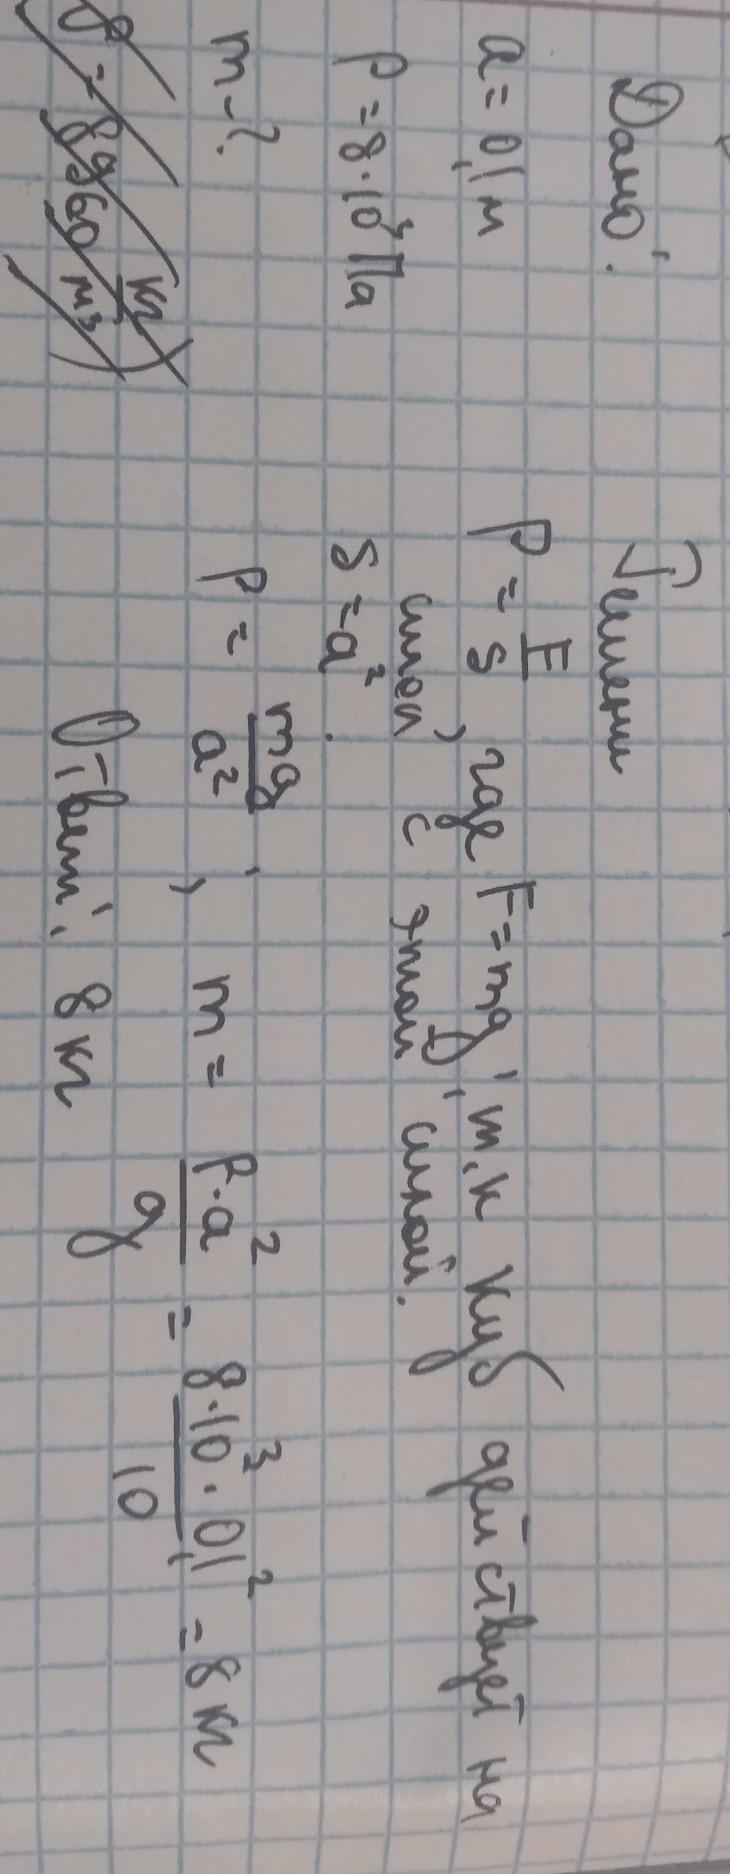 Дано:
a = 0,1 м
P = 8·10³ Па
m - ?
ρ = 8960 кг/м³
Решени
P = F/S, где F = mg, т.к куб действует на
стол с этой силой.
S = a².
P = mg/a², m = P·a²/g = 8·10³·0,1²/10 = 8 кг
Ответ: 8 кг